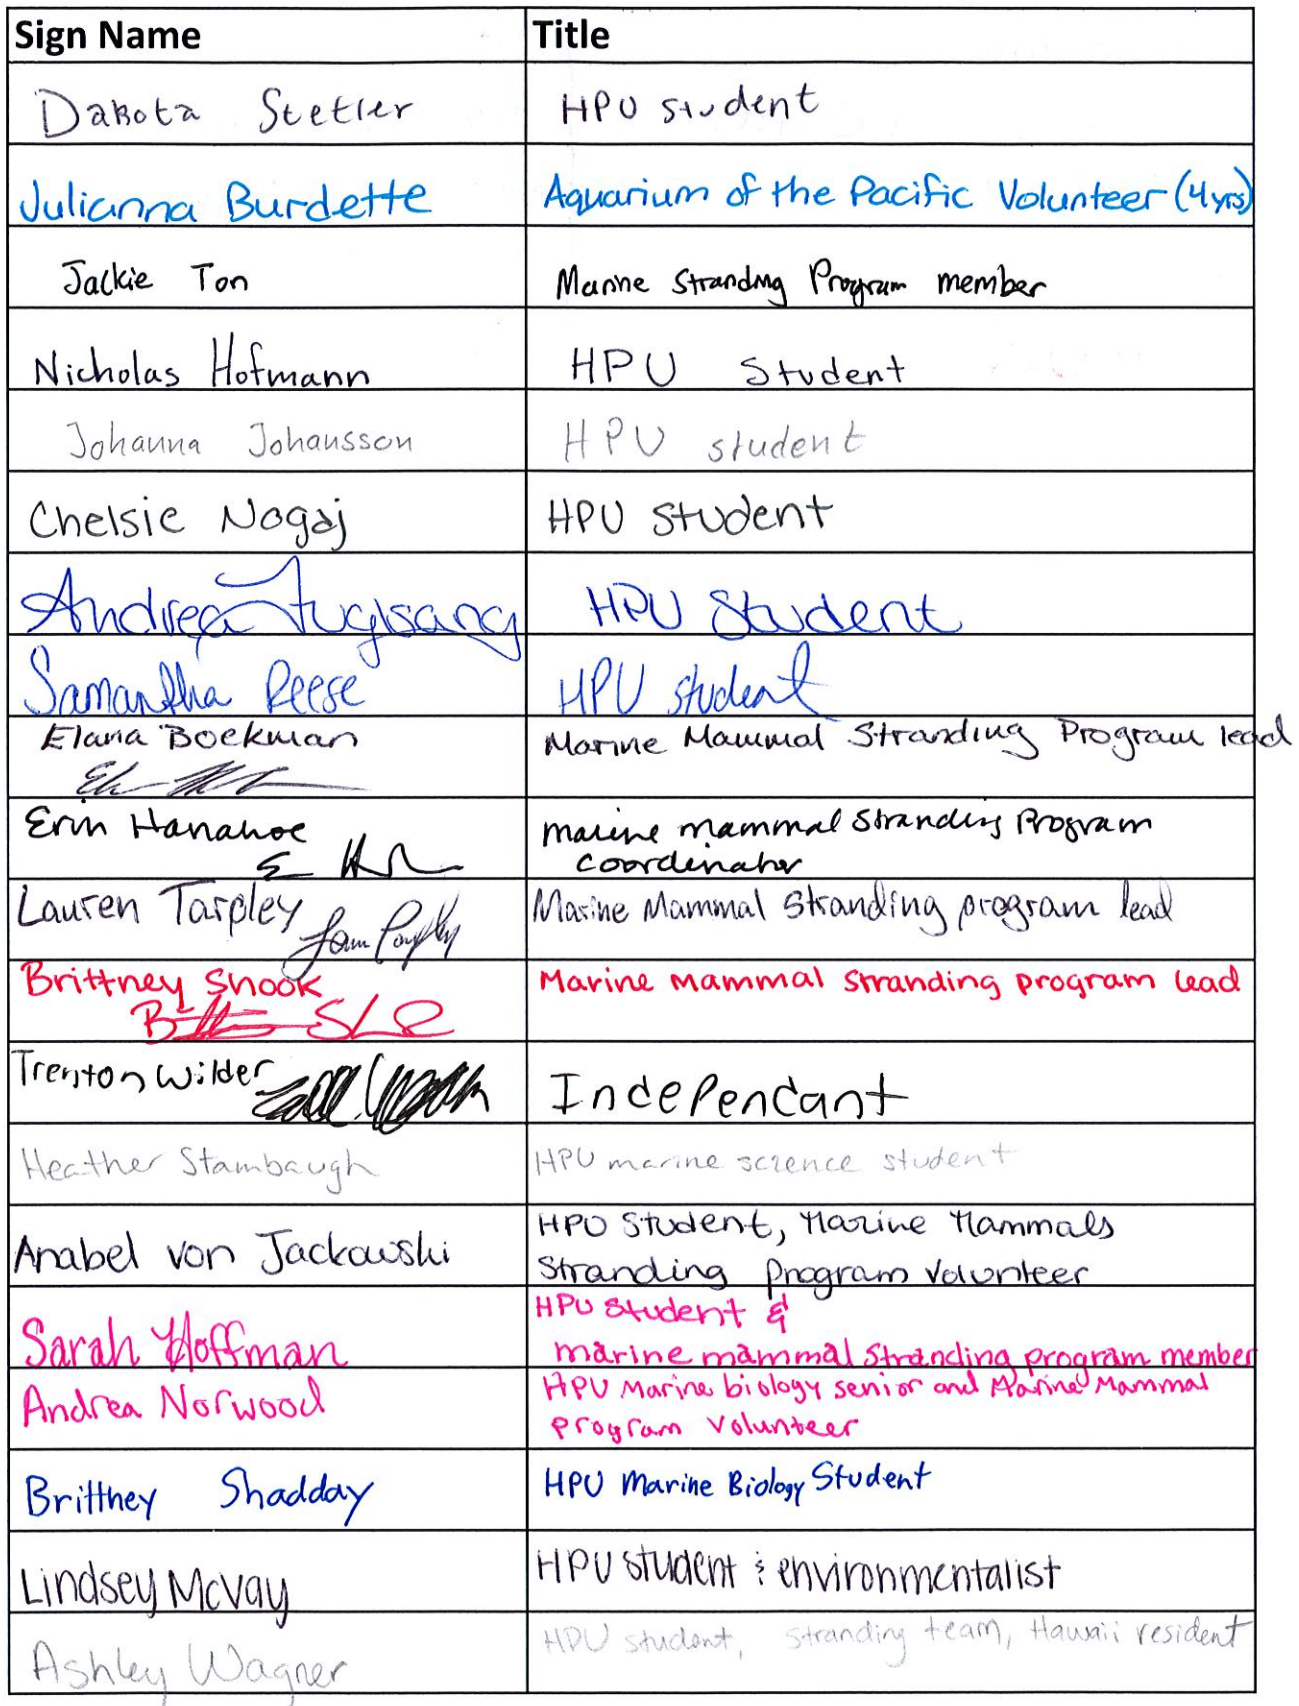 Sign Name Title
Dakota Stetler HPU student
Julianna Burdette Aquarium of the Pacific Volunteer (4 yrs)
Jackie Ton Marine Stranding Program member
Nicholas Hofmann HPU Student
Johanna Johansson HPU student
Chelsie Nogaj HPU Student
Andrea Fuglsang HPU Student
Samantha Reese HPU student
Elana Boekman Marine Mammal Stranding Program lead
Erin Hanahoe marine mammal Stranding Program
coordinator
Lauren Tarpley Marine Mammal Stranding program lead
Brittney Snook Marine Mammal Stranding program lead
Trenton Wilder Independant
Heather Stambaugh HPU marine science student
Anabel von Jackowski HPU Student, Marine Mammals
Stranding Program Volunteer
Sarah Hoffman HPU Student &
marine mammal Stranding program member
Andrea Norwood HPU Marine biology senior and Marine Mammal
program Volunteer
Brittney Shadday HPU Marine Biology Student
Lindsey McVay HPU student & environmentalist
Ashley Wagner HPU student, stranding team, Hawaii resident